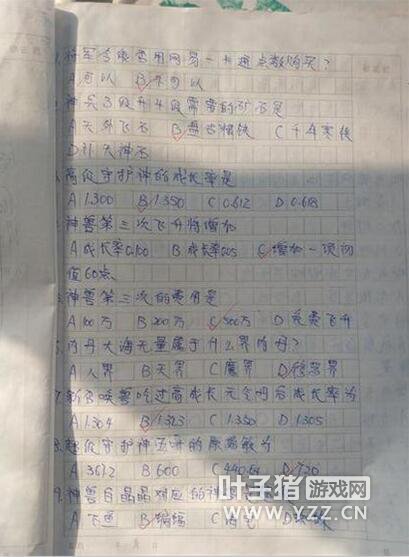 1.将军令能否用网易一卡通点数购买?
A可以 B不可以
神兵3级升4级需要的矿石是
A天外飞石 B盘古精铁 C千年寒铁
D补天神石
高级守护神的成长率是
A 1.300 B 1.350 C 0.612 D 0.618
神兽第三次飞升将增加
A成长率0.100 B成长率0.05 C增加一灵
值60点
神兽第三次的费用是
A 100万 B 200万 C 500万 D免费飞升
内丹大海无量属于什么界内丹?
A人界 B天界 C魔界 D
7.新召唤兽吃过高成长元气的后成长率为
A 1.304 B 1.323 C 1.350 D 1.305
8.超级守护神的原数敏为
A 3612 B 600 C 440.64 D 720
9.神兽白晶晶对应的神
A B蝙蝠 C D
叶子猪游戏网
YZZ.CN